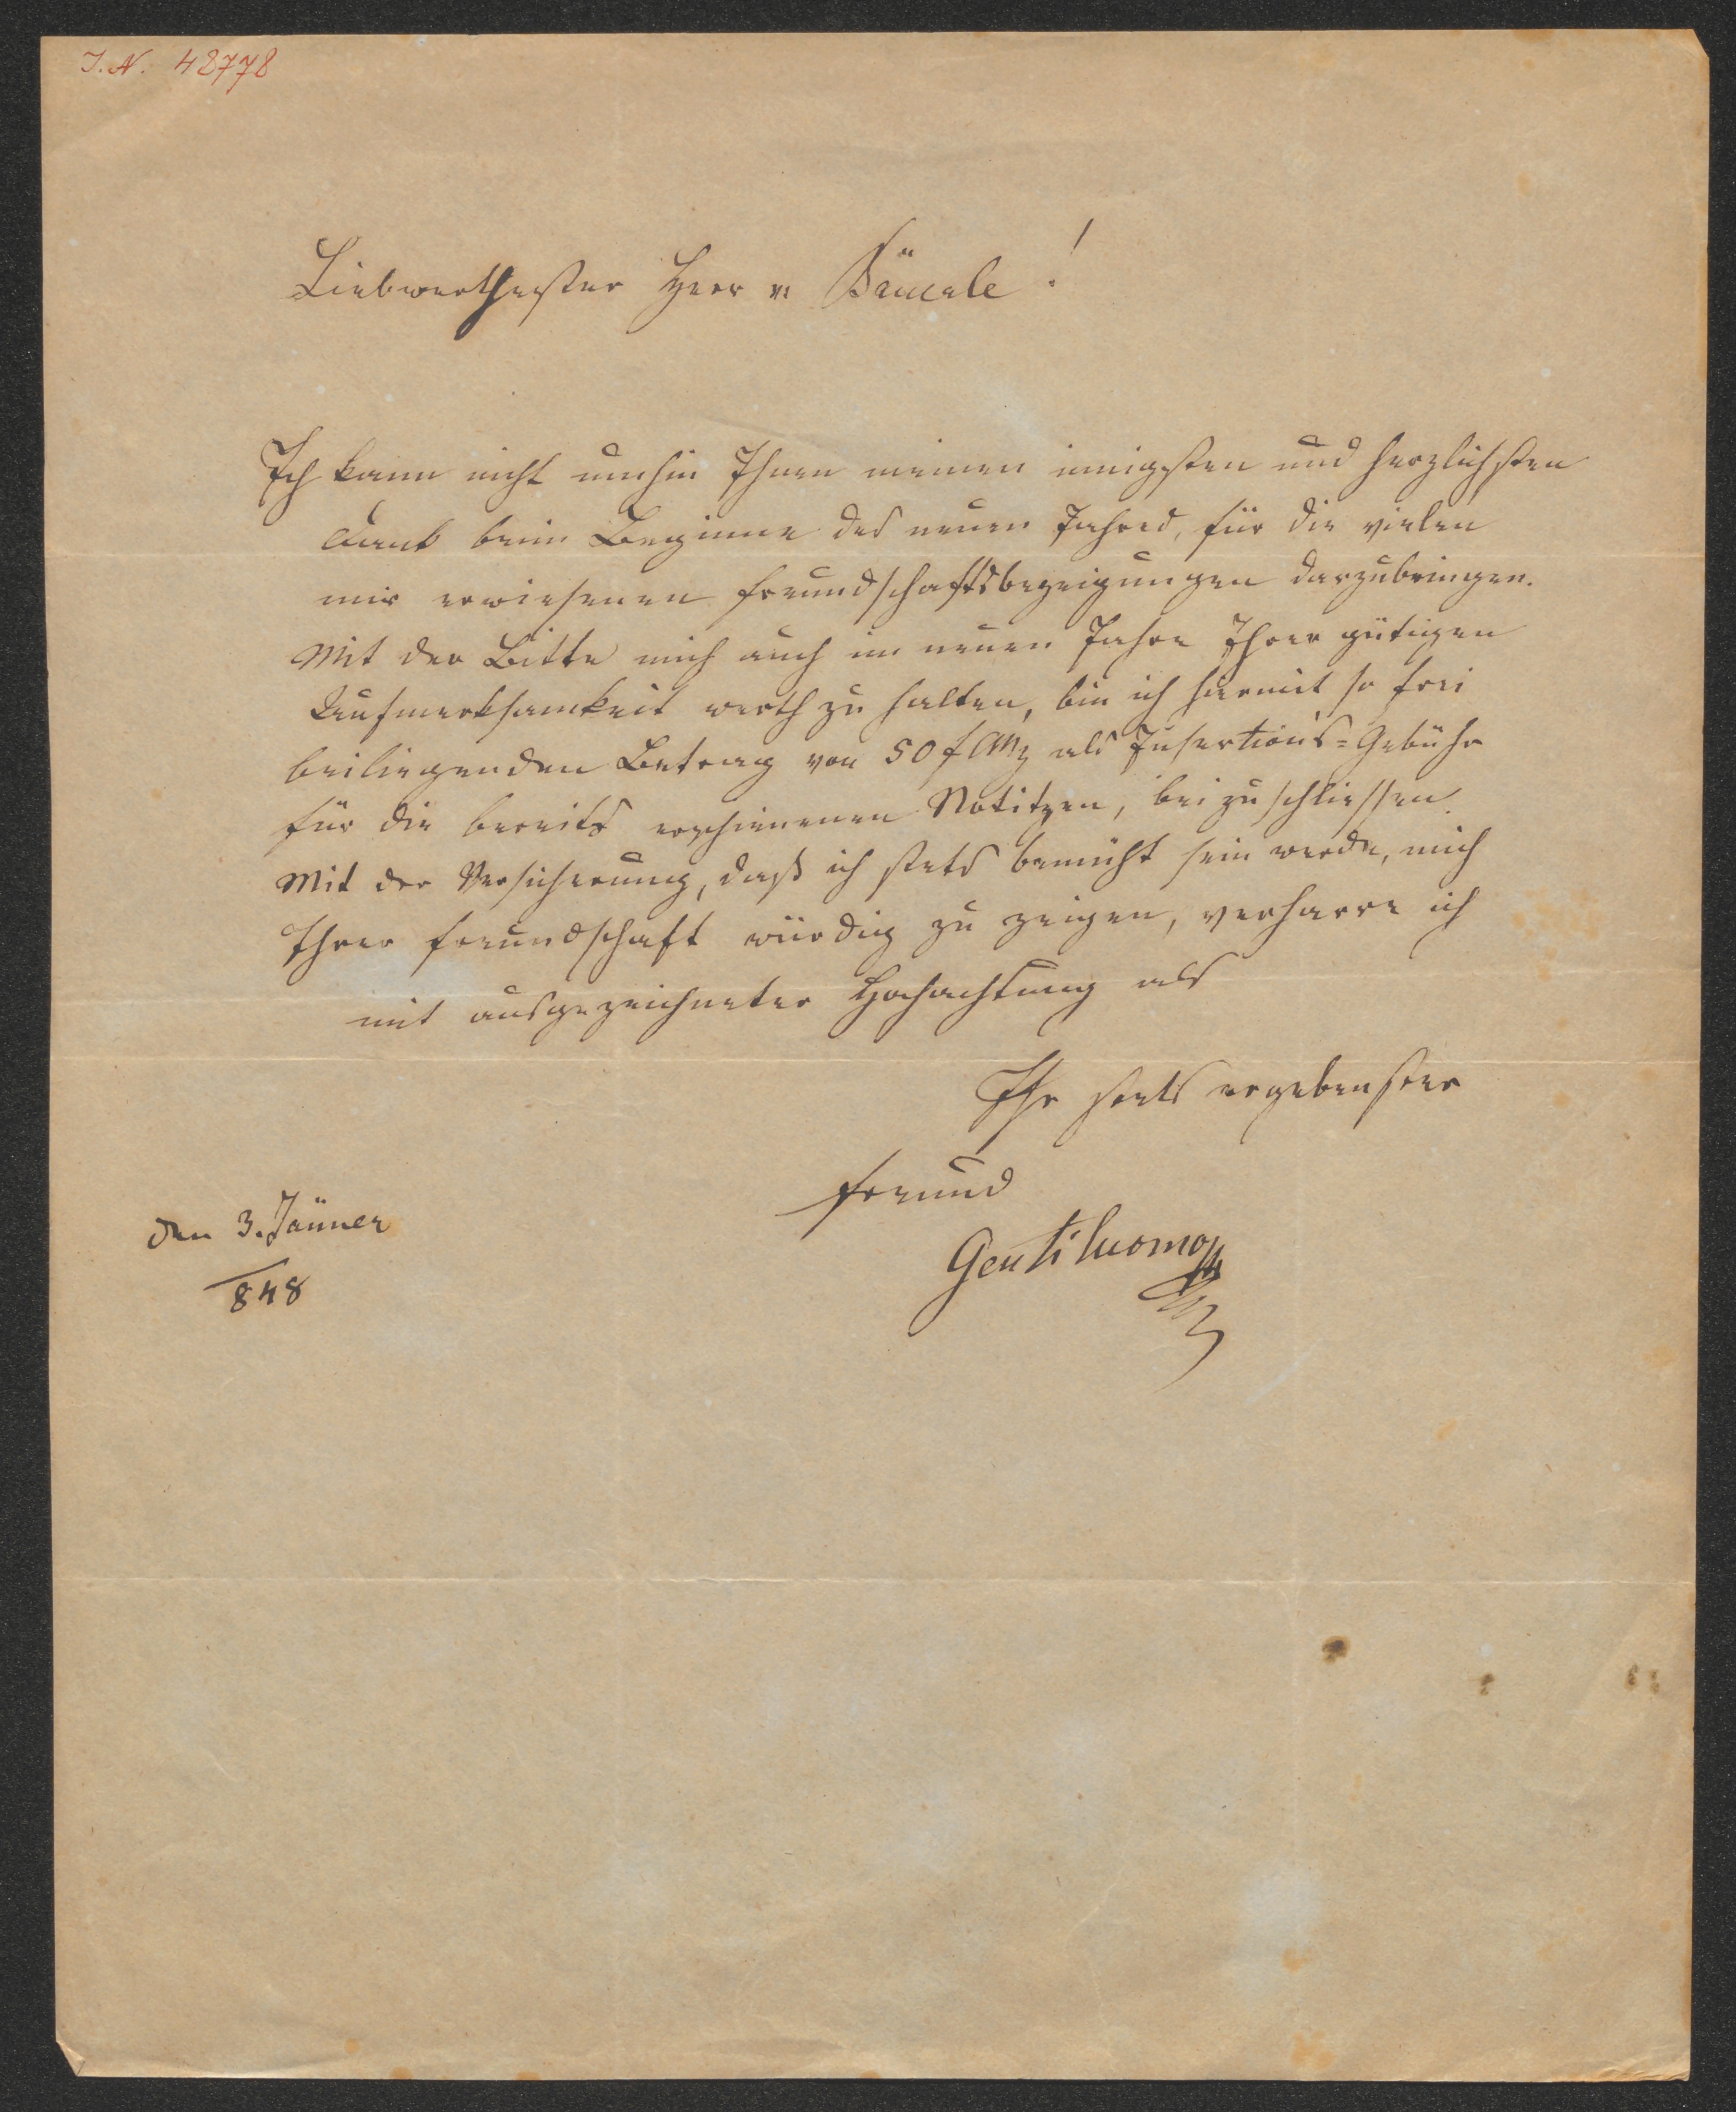 I.N. 48778
Liebwerthester Herr v. Bäuerle!
Ich kann nicht umhin Ihnen meinen innigsten und herzlichsten
Dank beim Beginne des neuen Jahres, für die vielen
mir erwiesenen Freundschaftsbezeigungen darzubringen.
Mit der Bitte mich auch im neuen Jahre Ihrer gütigen
Aufmerksamkeit werth zu halten, bin ich hiermit so frei
beiliegenden Betrag von 50 f CMz als Insertions=Gebühr
für die bereits erschienenen Notitzen, beizuschliessen.
Mit der Versicherung, daß ich stets bemüht sein werde, mich
Ihrer Freundschaft würdig zu zeigen, verharre ich
mit ausgezeichneter Hochachtung als
Ihr stets ergebenster
Freund
Gentiluomo
den 3. Jänner
848